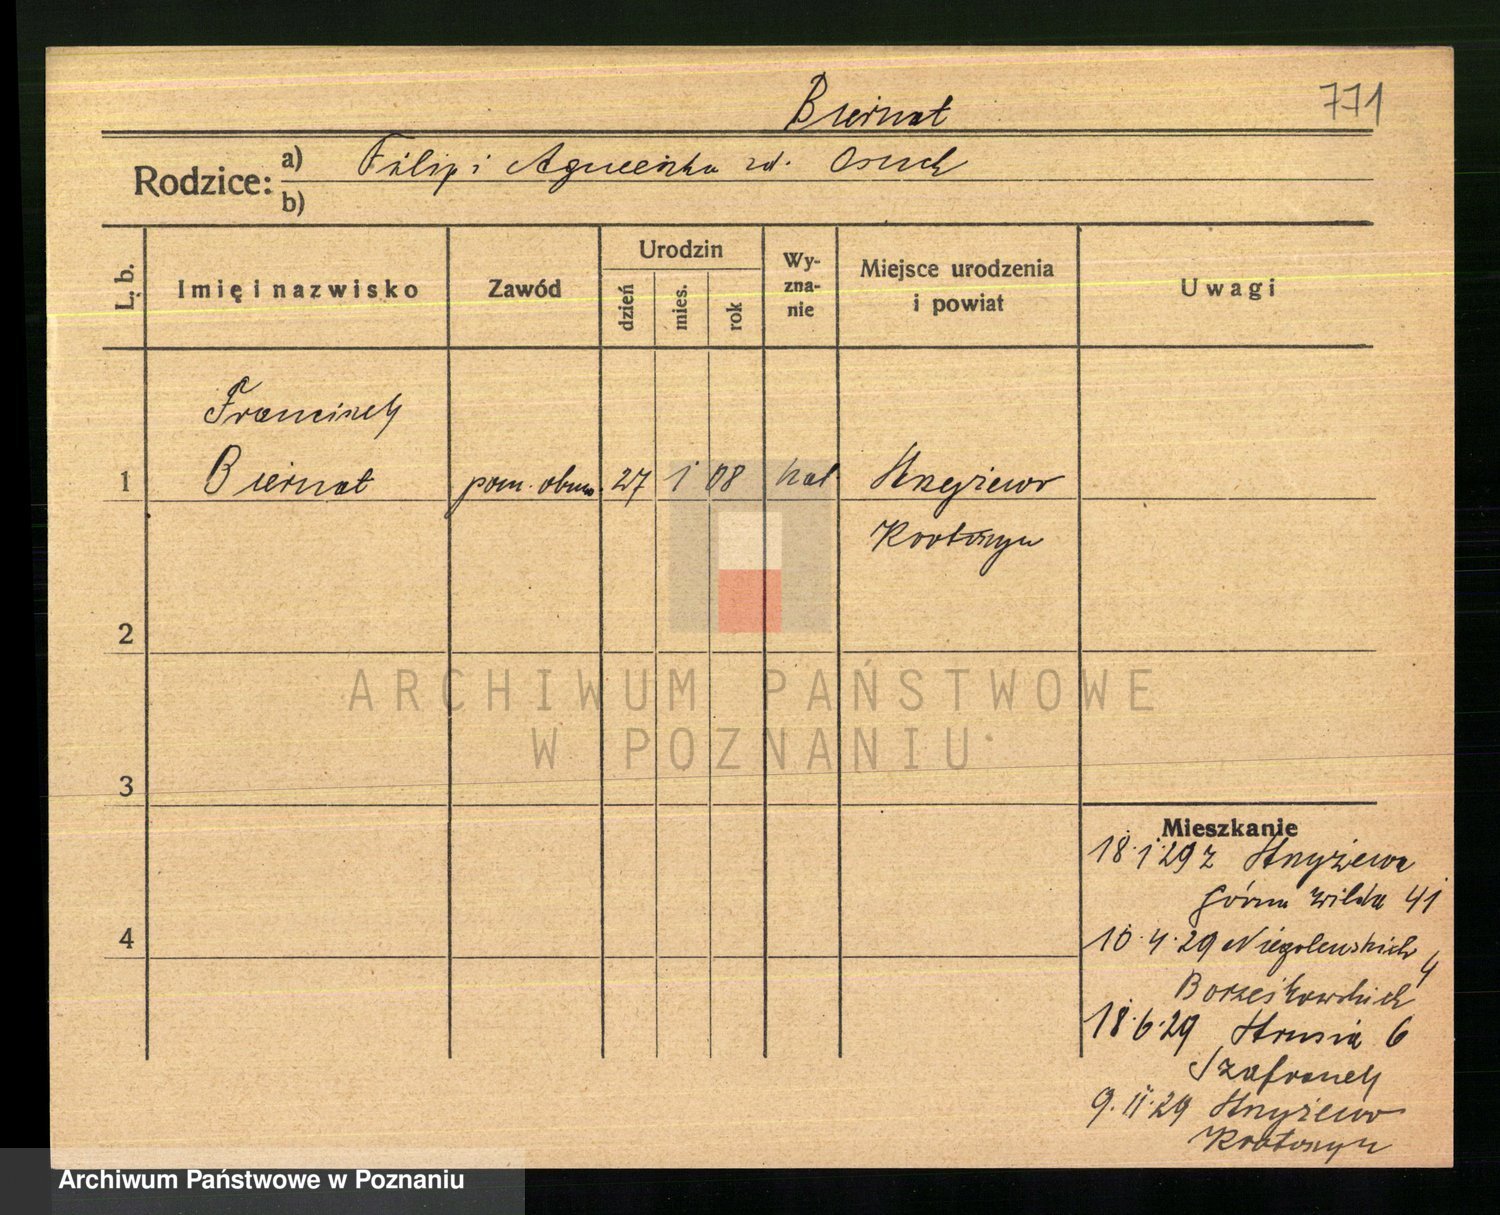 771
Biernat
Rodzice: a) Filip i Agnieszka zd. Osuch
b)
L. b. Imię i nazwisko Zawód Urodzin dzień mies. rok Wy-zna-nie Miejsce urodzenia i powiat Uwagi
Franciszek
1 Biernat pom. obuw. 27 1 08 kat Starygród
Krotoszyn
2
3
4
Mieszkanie
18.1.29 z
Górna Wilda 41
10.4.29 Niegolewskich 4
18.6.29 Strusia 6
Szafranek
9.11.29
Krotoszyn
ARCHIWUM PAŃSTWOWE
W POZNANIU
Archiwum Państwowe w Poznaniu